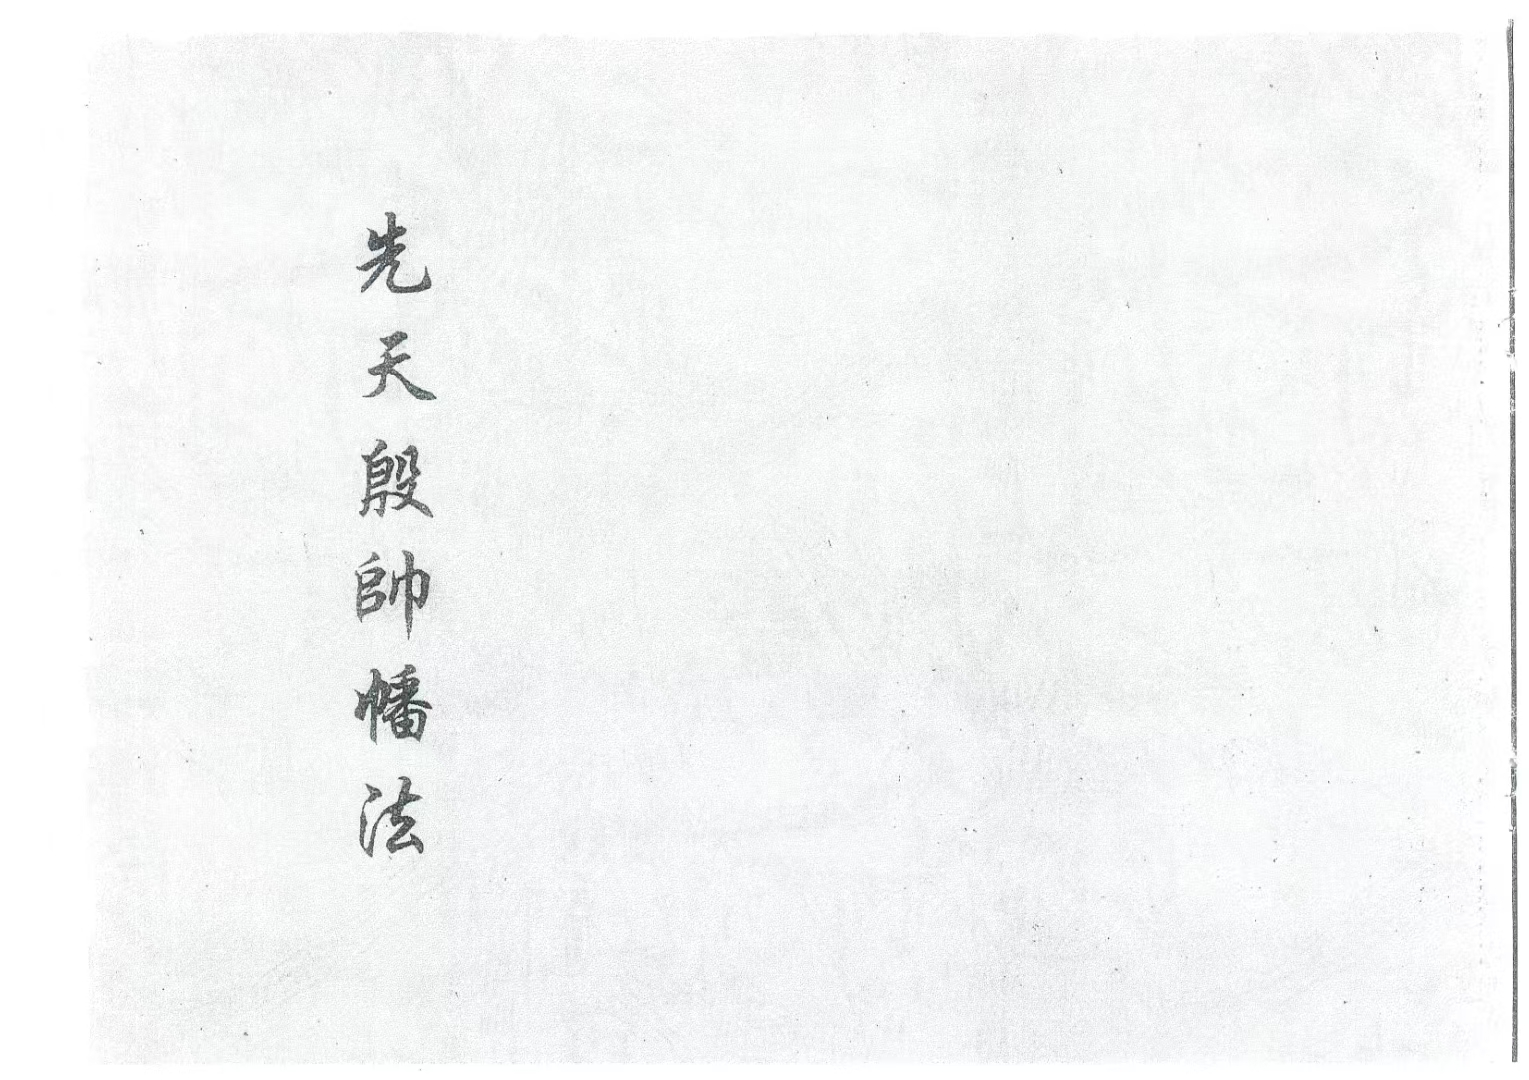 先天殷帥幡法